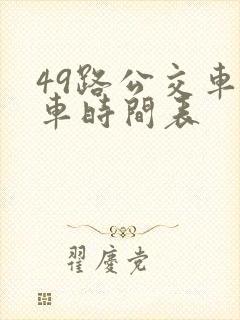 49路公交车
车時間表
翟慶党